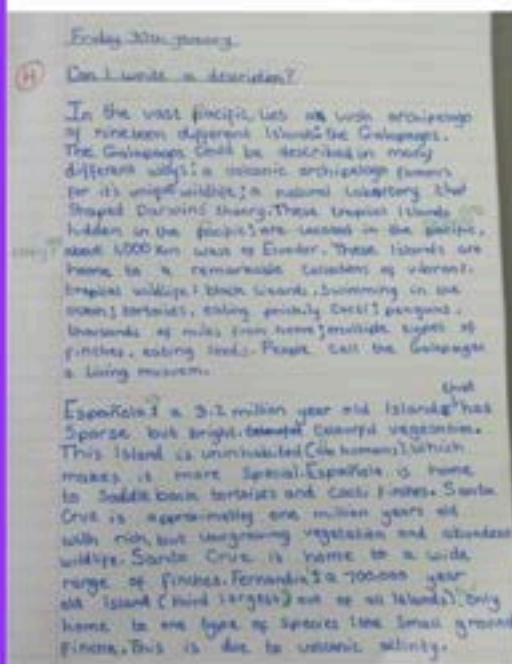 Friday 30th January
H
Can I write a description?
In the vast Pacific, lies a lush archipelago
of nineteen different Islands: the Galapagos.
The Galapagos could be described in many
different ways: a volcanic archipelago famous
for it's unique wildlife; a natural laboratory that
shaped Darwins theory. These tropical Islands
hidden in the pacific, are located in the pacific,
about 1,000 km west of Ecuador. These Islands are
home to a remarkable of vibrant,
tropical wildlife: black lizards, swimming in the
ocean; tortoises, eating prickly cacti; penguins,
thousands of miles from home; multiple types of
finches, eating seeds. People call the Galapagos
a living museum.
that
Española: a 3.2 million year old Island has
sparse but bright colourful vegetation.
This Island is uninhabited (no humans) which
makes it more special. Española is home
to Saddle back tortoises and cacti finches. Santa
Cruz is approximatly one million years old
with rich, but vegetation and abundant
wildlife. Santa Cruz is home to a wide
range of finches. Fernandina: a 700,000 year
old Island (third largest out of all Islands). Only
home to one type of species (the small ground
finch). This is due to volcanic activity.